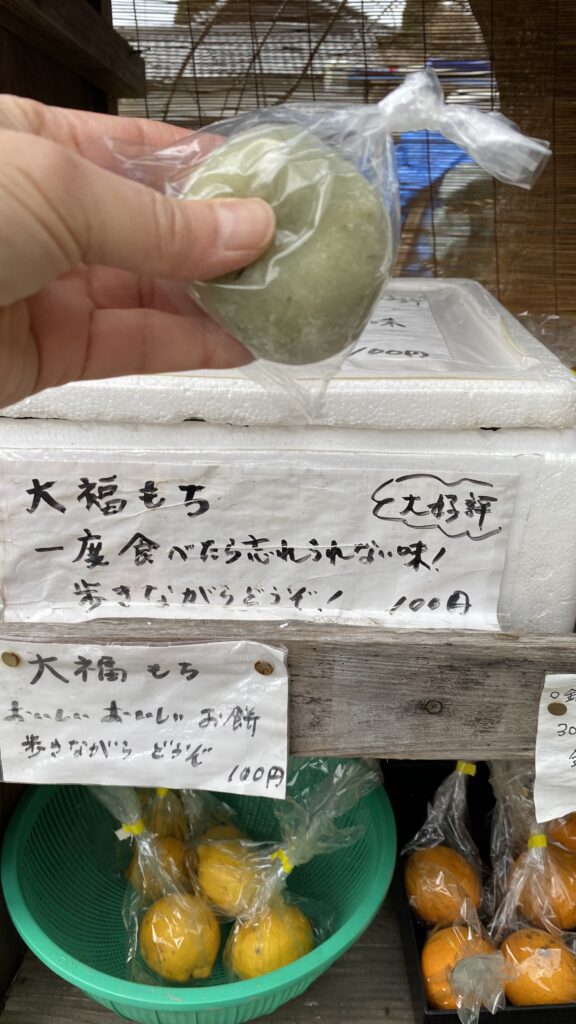 味
100円
大福もち
大好評
一度食べたら忘れられない味!
歩きながらどうぞ!
100円
大福もち
おいしいおいしいお餅
歩きながらどうぞ
100円
30